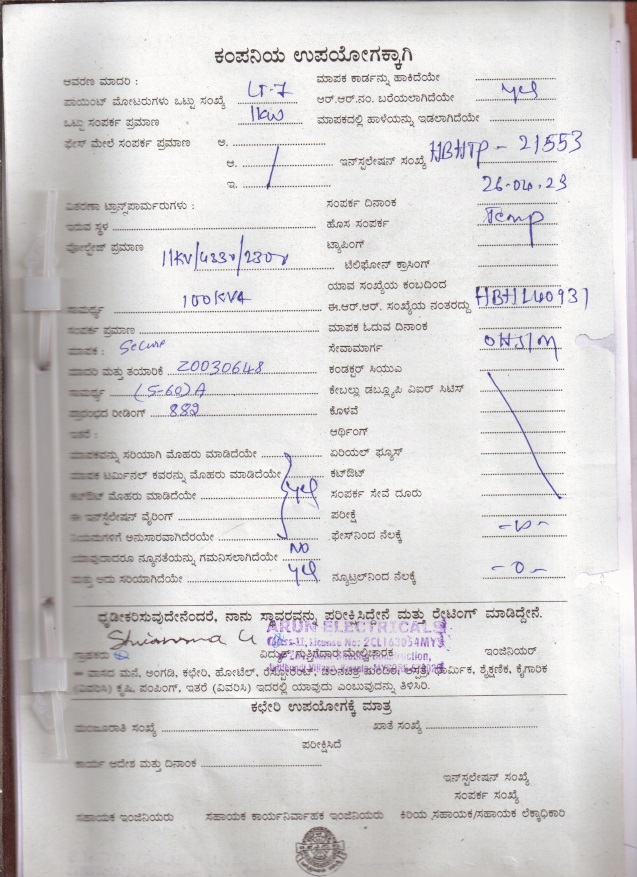 ಕಂಪನಿಯ ಉಪಯೋಗಕ್ಕಾಗಿ
ಆವರಣ ಮಾದರಿ : LT-7 ಮಾಪಕ ಕಾರ್ಡನ್ನು ಹಾಕಿದೆಯೇ
ಪಾಯಿಂಟ್ ಮೋಟರುಗಳು ಒಟ್ಟು ಸಂಖ್ಯೆ ಆರ್.ಆರ್.ನಂ. ಬರೆಯಲಾಗಿದೆಯೇ yes
ಒಟ್ಟು ಸಂಪರ್ಕ ಪ್ರಮಾಣ 1kw ಮಾಪಕದಲ್ಲಿ ಹಾಳೆಯನ್ನು ಇಡಲಾಗಿದೆಯೇ
ಫೇಸ್ ಮೇಲೆ ಸಂಪರ್ಕ ಪ್ರಮಾಣ ಅ.
ಆ. ಇನ್‌ಸ್ಟಲೇಷನ್ ಸಂಖ್ಯೆ HBHTP - 21553
ಇ. 26-04.23
ವಿತರಣಾ ಟ್ರಾನ್ಸ್‌ಪಾರ್ಮರುಗಳು : ಸಂಪರ್ಕ ದಿನಾಂಕ
ಇರುವ ಸ್ಥಳ ಹೊಸ ಸಂಪರ್ಕ Temp
ವೋಲ್ಟೇಜ್ ಪ್ರಮಾಣ 11KV/433v/230v ಟ್ಯಾಪಿಂಗ್
ಟೆಲಿಫೋನ್ ಕ್ರಾಸಿಂಗ್
ಯಾವ ಸಂಖ್ಯೆಯ ಕಂಬದಿಂದ
ಸಾಮರ್ಥ್ಯ 100KVA ಈ.ಆರ್.ಆರ್. ಸಂಖ್ಯೆಯ ನಂತರದ್ದು HBHL40937
ಸಂಪರ್ಕ ಪ್ರಮಾಣ ಮಾಪಕ ಓದುವ ದಿನಾಂಕ
ಮಾಪಕ : Secure ಸೇವಾಮಾರ್ಗ OHS/M
ಮಾದರಿ ಮತ್ತು ತಯಾರಿಕೆ 20030648 ಕಂಡಕ್ಟರ್ ಸಿಯುಎ
ಸಾಮರ್ಥ್ಯ (5-60)A ಕೇಬಲ್ಲು ಡಬ್ಲ್ಯೂಪಿ ವಿಐರ್ ಸಿಟಿಸ್
ಪ್ರಾರಂಭದ ರೀಡಿಂಗ್ 882 ಕೊಳವೆ
ಇತರೆ : ಅರ್ಥಿಂಗ್
ಮಾಪಕವನ್ನು ಸರಿಯಾಗಿ ಮೊಹರು ಮಾಡಿದೆಯೇ ಏರಿಯಲ್ ಫ್ಯೂಸ್
ಮಾಪಕ ಟರ್ಮಿನಲ್ ಕವರನ್ನು ಮೊಹರು ಮಾಡಿದೆಯೇ ಕಟ್‌ಔಟ್
ಕಟ್‌ಔಟ್ ಮೊಹರು ಮಾಡಿದೆಯೇ yes ಸಂಪರ್ಕ ಸೇವೆ ದೂರು
ಈ ಇನ್‌ಸ್ಟಲೇಷನ್ ವೈರಿಂಗ್ ಪರೀಕ್ಷೆ
ನಿಯಮಗಳಿಗೆ ಅನುಸಾರವಾಗಿದೆರಯೇ ಫೇಸ್‌ನಿಂದ ನೆಲಕ್ಕೆ
ಯಾವುದಾದರೂ ನ್ಯೂನತೆಯನ್ನು ಗಮನಿಸಲಾಗಿದೆಯೇ NO
ಮತ್ತು ಅದು ಸರಿಯಾಗಿದೆಯೇ yes ನ್ಯೂಟ್ರಲ್‌ನಿಂದ ನೆಲಕ್ಕೆ -0-
ಧೃಡೀಕರಿಸುವುದೇನೆಂದರೆ, ನಾನು ಸ್ಥಾವರವನ್ನು ಪರೀಕ್ಷಿಸಿದ್ದೇನೆ ಮತ್ತು ರೇಟಿಂಗ್ ಮಾಡಿದ್ದೇನೆ.
ARUN ELECTRICALS
License No: 2CL163054MYS
ಗ್ರಾಹಕರು ವಿದ್ಯುತ್ ಗುತ್ತಿಗೆದಾರ ಮೇಲ್ವಿಚಾರಕ ಇಂಜಿನಿಯರ್
ವಾಸದ ಮನೆ, ಅಂಗಡಿ, ಕಛೇರಿ, ಹೋಟೆಲ್, ರೆಸ್ಟೋರೆಂಟ್, ಧಾರ್ಮಿಕ, ಶೈಕ್ಷಣಿಕ, ಕೈಗಾರಿಕೆ
(ವಿವರಿಸಿ) ಕೃಷಿ, ಪಂಪಿಂಗ್, ಇತರೆ (ವಿವರಿಸಿ) ಇದರಲ್ಲಿ ಯಾವುದು ಎಂಬುವುದನ್ನು ತಿಳಿಸಿರಿ.
ಕಛೇರಿ ಉಪಯೋಗಕ್ಕೆ ಮಾತ್ರ
ಮಂಜೂರಾತಿ ಸಂಖ್ಯೆ ಖಾತೆ ಸಂಖ್ಯೆ
ಪರೀಕ್ಷಿಸಿದೆ
ಕಾರ್ಯ ಆದೇಶ ಮತ್ತು ದಿನಾಂಕ
ಇನ್‌ಸ್ಟಲೇಷನ್ ಸಂಖ್ಯೆ
ಸಂಪರ್ಕ ಸಂಖ್ಯೆ
ಸಹಾಯಕ ಇಂಜಿನಿಯರು ಸಹಾಯಕ ಕಾರ್ಯನಿರ್ವಾಹಕ ಇಂಜಿನಿಯರು ಕಿರಿಯ ಸಹಾಯಕ/ಸಹಾಯಕ ಲೆಕ್ಕಾಧಿಕಾರಿ